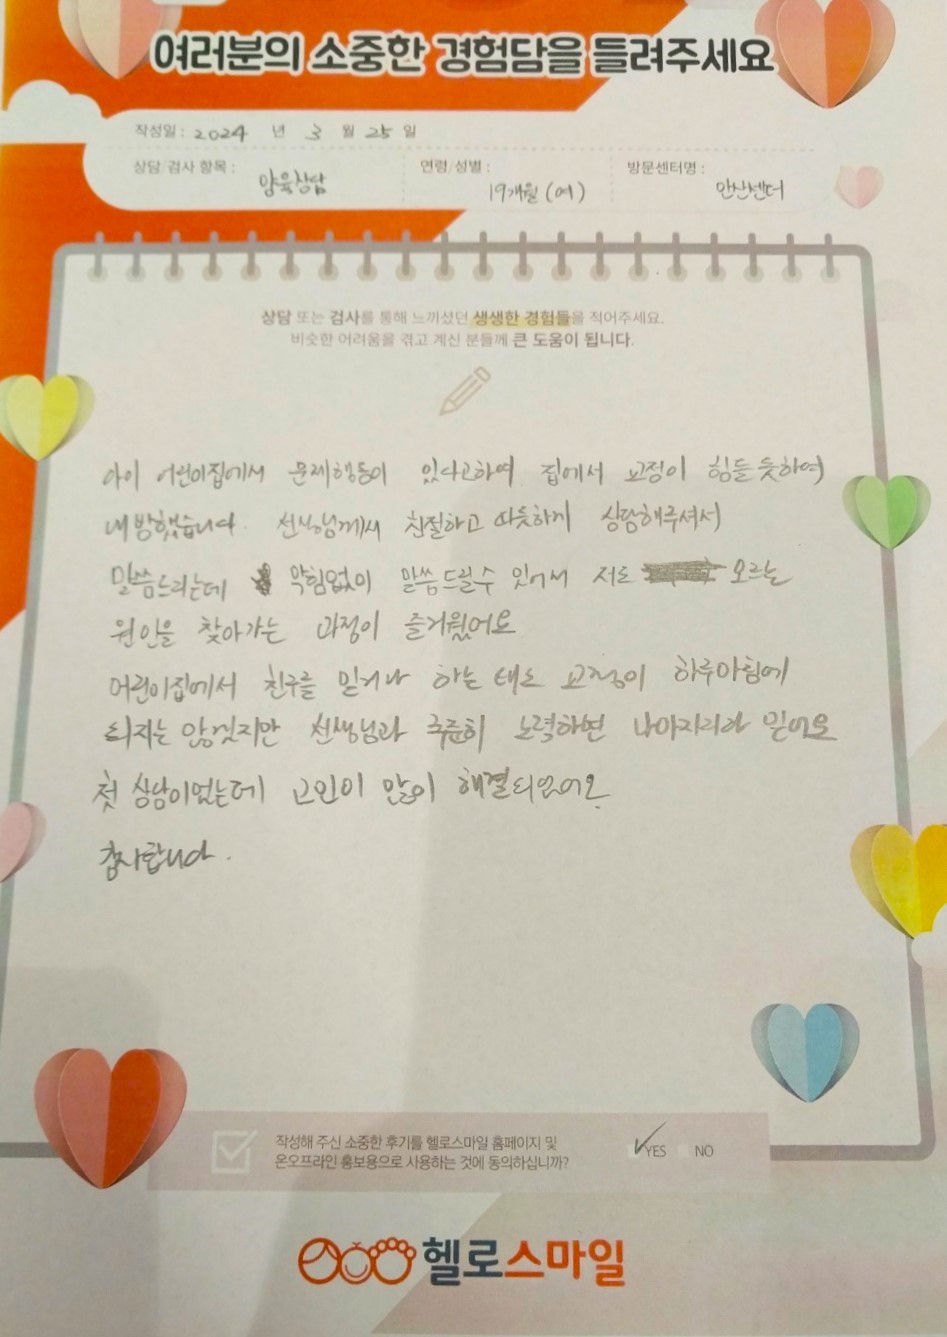 여러분의 소중한 경험담을 들려주세요
작성일 : 2024 년 3 월 25 일
상담/검사 항목 : 양육상담 연령/성별 : 19개월 (여) 방문센터명 : 안산센터
상담 또는 검사를 통해 느끼셨던 생생한 경험들을 적어주세요.
비슷한 어려움을 겪고 계신 분들께 큰 도움이 됩니다.
아이 어린이집에서 문제행동이 있다고하여 집에서 교정이 힘들듯하여
내방했습니다. 선생님께서 친절하고 따뜻하게 상담해주셔서
말씀드리는데 막힘없이 말씀드릴수 있어서 저도 모르는
원인을 찾아가는 과정이 즐거웠어요
어린이집에서 친구를 밀거나 하는 태도 교정이 하루아침에
되지는 않겠지만 선생님과 꾸준히 노력하면 나아지리라 믿어요
첫 상담이었는데 고민이 많이 해결되었어요.
감사합니다.
작성해 주신 소중한 후기를 헬로스마일 홈페이지 및
온오프라인 홍보용으로 사용하는 것에 동의하십니까? YES NO
헬로스마일